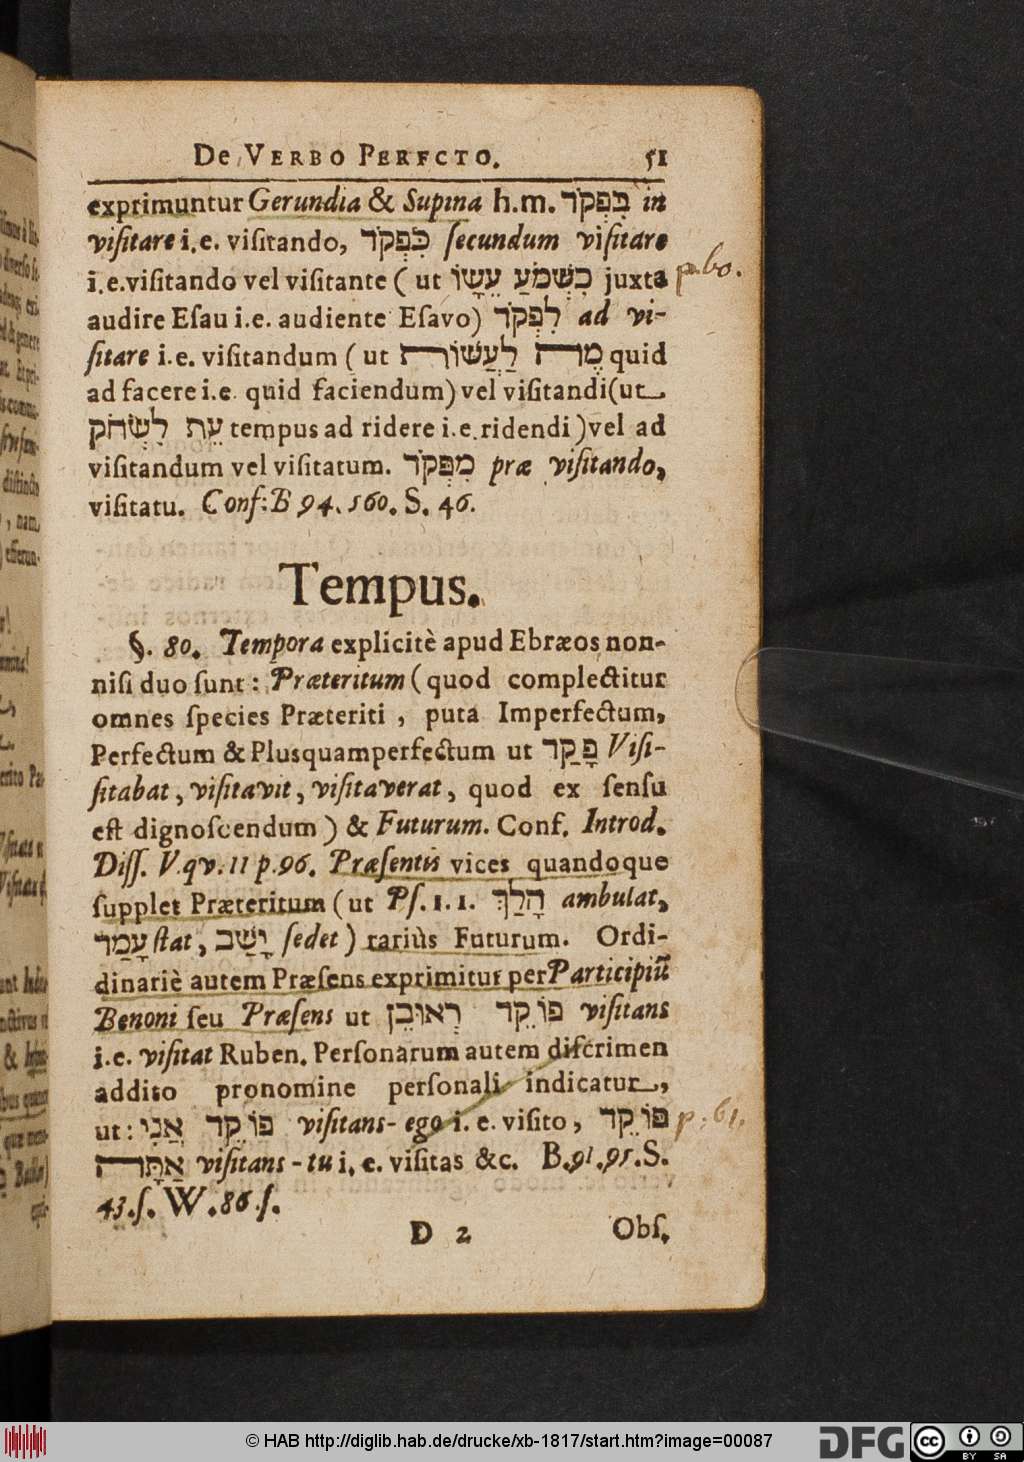 De VERBO PERFCTO. 51
exprimuntur Gerundia & Supina h.m. בִּפְקֹד in
viſitare i.e. viſitando, כִּפְקֹד ſecundum viſitare
i.e. viſitando vel viſitante ( ut כִּשְׁמֹעַ עֵשָׂו juxta
audire Eſau i.e. audiente Eſavo) לִפְקֹד ad vi-
ſitare i.e. viſitandum ( ut מֶה לַעֲשׂוֹת quid
ad facere i.e. quid faciendum) vel viſitandi (ut
עֵת לִשְׂחֹק tempus ad ridere i.e. ridendi )vel ad
viſitandum vel viſitatum. מִפְּקֹד præ viſitando,
viſitatu. Conf: B 94. 160. S. 46.
p. 60.
Tempus.
§. 80. Tempora explicitè apud Ebræos non-
niſi duo ſunt: Præteritum ( quod complectitur
omnes ſpecies Præteriti , puta Imperfectum,
Perfectum & Plusquamperfectum ut פָּקַד Viſi-
ſitabat, viſitavit, viſitaverat, quod ex ſenſu
eſt dignoſcendum ) & Futurum. Conf. Introd.
Diſſ. V. qv. 11 p. 96. Præſentis vices quandoque
ſupplet Præteritum ( ut Pſ. 1. 1. הָלַךְ ambulat,
עָמַד ſtat, יָשַׁב ſedet ) rariùs Futurum. Ordi-
dinariè autem Præſens exprimitur per Participiū
Benoni ſeu Præſens ut פּוֹקֵד רְאוּבֵן viſitans
i.e. viſitat Ruben. Perſonarum autem diſcrimen
addito pronomine perſonali indicatur,
ut: פּוֹקֵד אֲנִי viſitans-ego i. e. viſito, פּוֹקֵד
אַתָּה viſitans-tu i. e. viſitas &c. B. 91. 95. S.
43. ſ. W. 86. ſ.
p. 61.
D 2 Obſ.
© HAB http://diglib.hab.de/drucke/xb-1817/start.htm?image=00087
DFG
cc BY SA